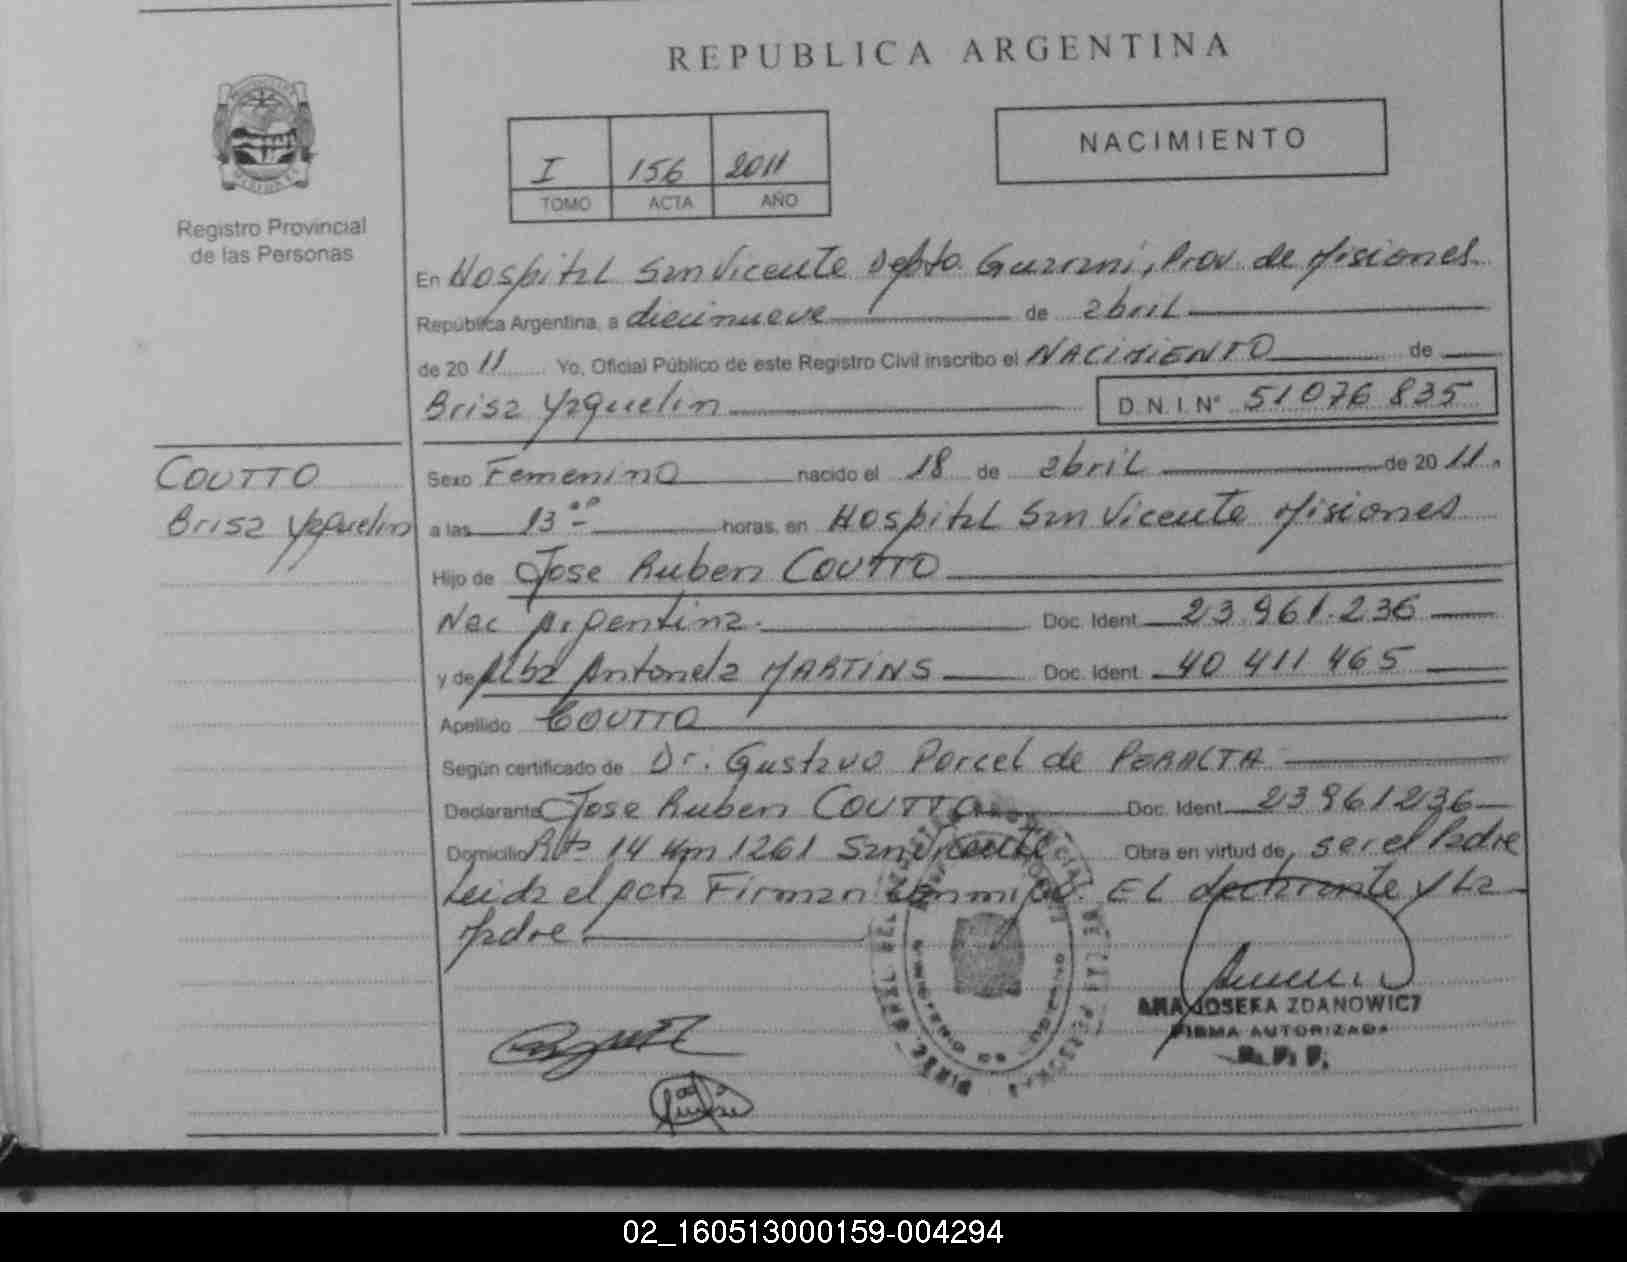 REPUBLICA ARGENTINA
I 156 2011
TOMO ACTA AÑO
NACIMIENTO
Registro Provincial
de las Personas
En Hospital San Vicente Depto. Guarani, Prov. de Misiones
República Argentina, a diecinueve de abril
de 20 11 Yo, Oficial Público de este Registro Civil inscribo el NACIMIENTO de
Brisa Yaquelin D.N.I. N° 51 076 835
COUTTO
Brisa Yaquelin
Sexo Femenino nacido el 18 de abril de 20 11.
a las 13 horas, en Hospital San Vicente Misiones
Hijo de Jose Ruben COUTTO
Nac Argentina. Doc. Ident. 23.961.236
y de Alba Antonela MARTINS Doc. Ident. 40 411 465
Apellido COUTTO
Según certificado de Dr. Gustavo Porcel de PERALTA
Declarante Jose Ruben COUTTO Doc. Ident. 23961236
Domicilio Ruta 14 Km 1261 San Vicente Obra en virtud de, ser el Padre
Leida el acta Firman conmigo. EL declarante y La
Madre
ANA JOSEFA ZDANOWICZ
FIRMA AUTORIZADA
R. P. P.
02_160513000159-004294